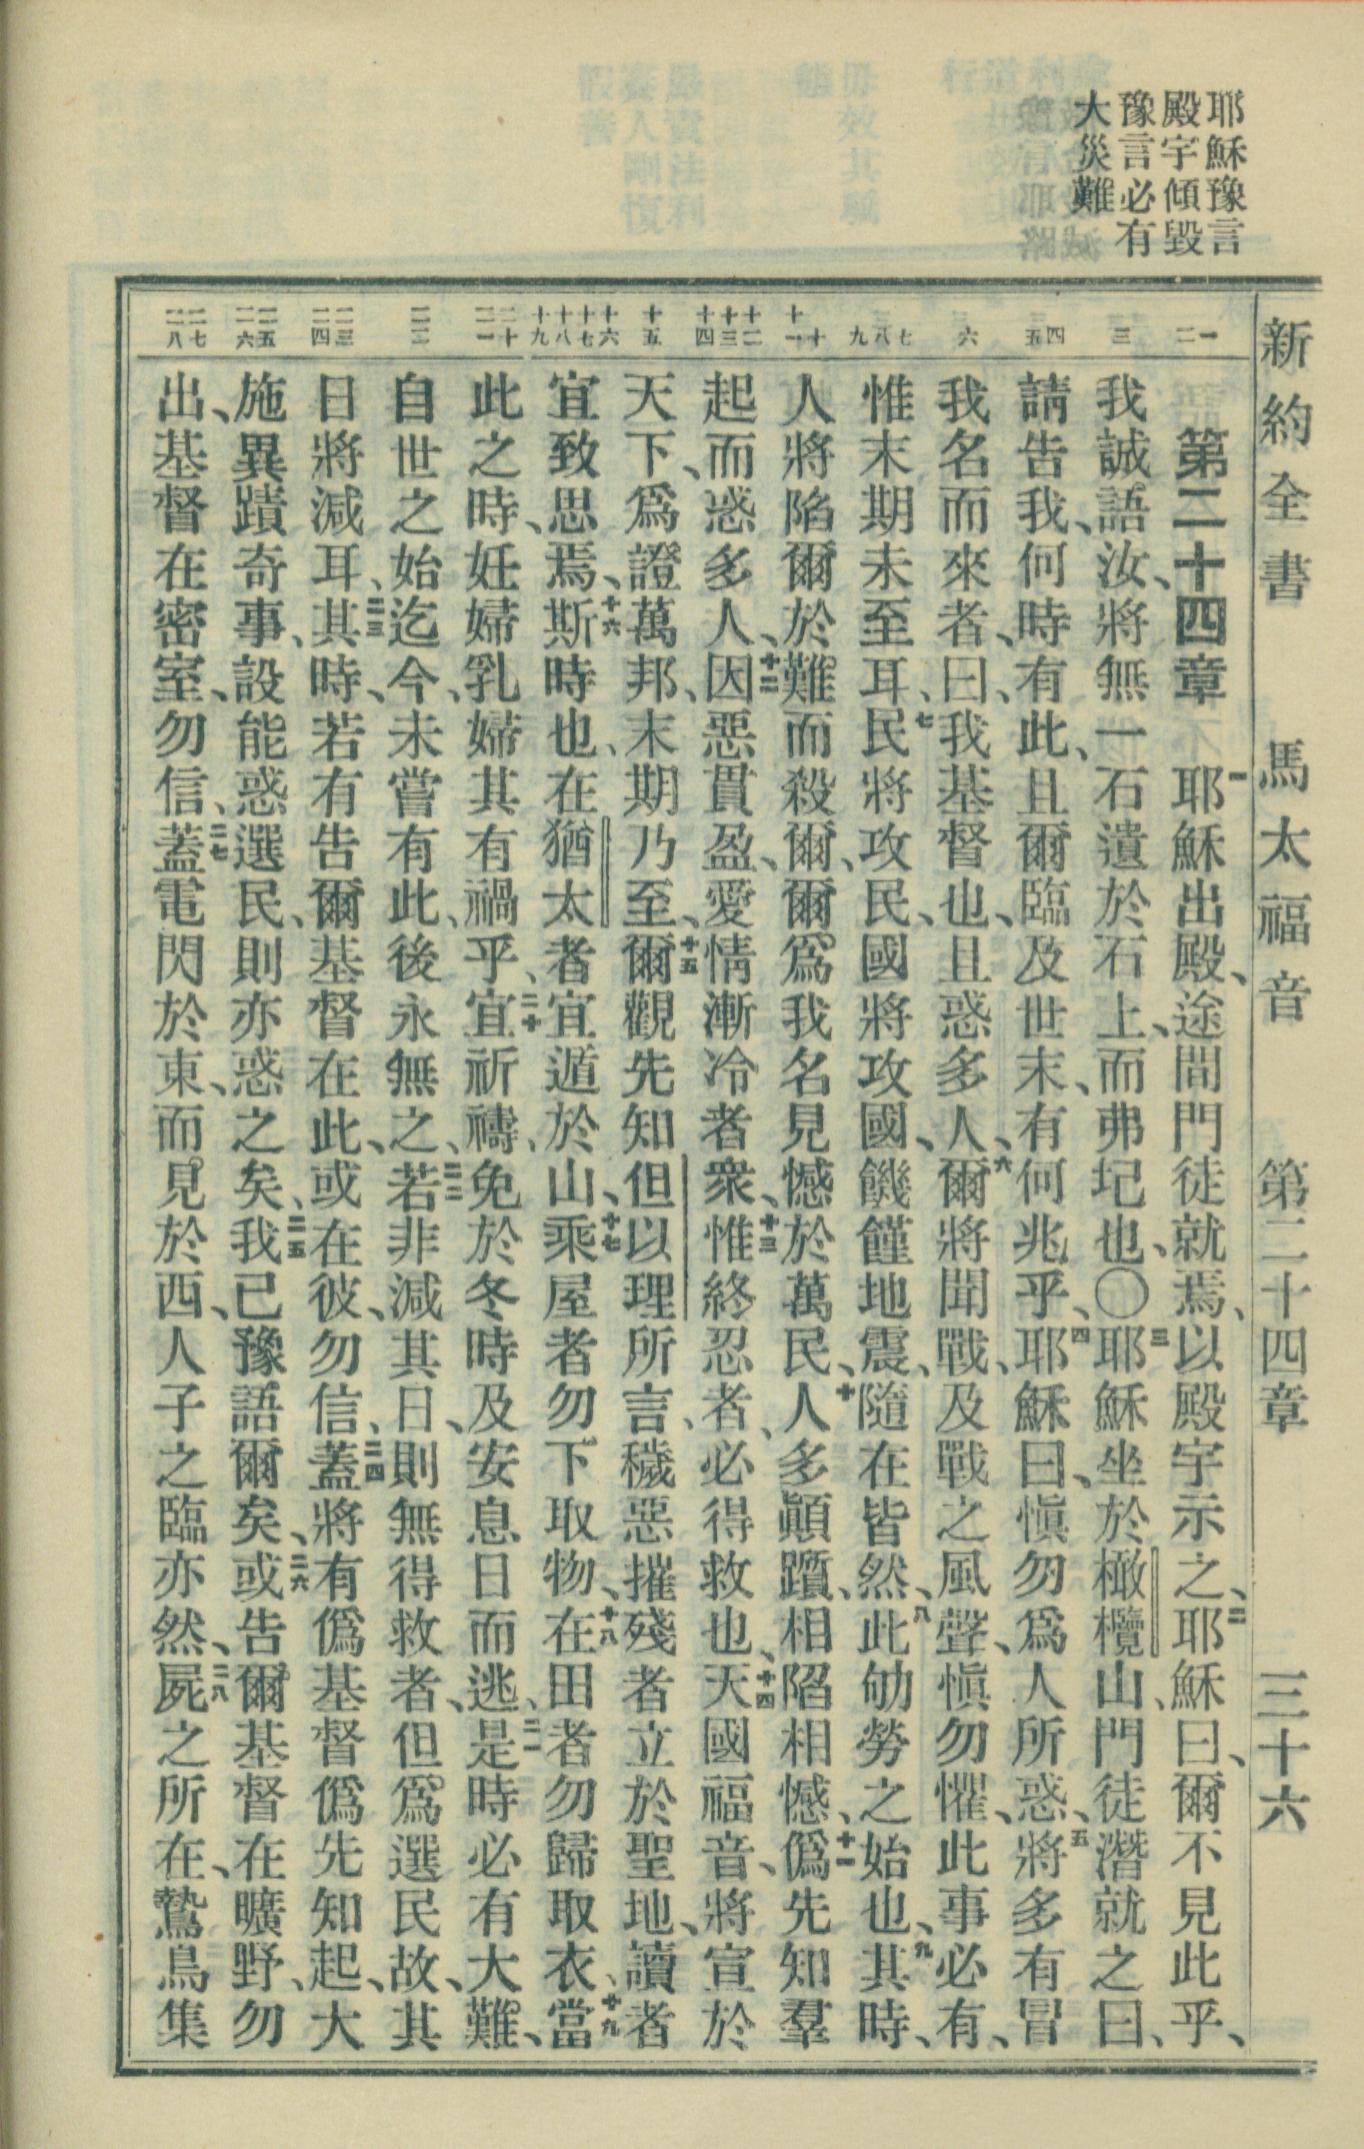 耶穌豫言
殿宇傾毀
豫言必有
大災難
新約全書 馬太福音 第二十四章 三十六
一 二
三
四 五
六
七 八 九
十 十一
十二 十三 十四
十五
十六 十七 十八 十九
二十 二一
二二
二三 二四
二五 二六
二七 二八
第二十四章 一耶穌出殿、途間門徒就焉、以殿宇示之、二耶穌曰、爾不見此乎、
我誠語汝、將無一石遺於石上、而弗圮也、〇三耶穌坐於橄欖山、門徒潛就之曰、
請告我、何時有此、且爾臨及世末、有何兆乎、四耶穌曰、愼勿爲人所惑、五將多有冒
我名而來者、曰、我基督也、且惑多人、六爾將聞戰、及戰之風聲、愼勿懼、此事必有、
惟末期未至耳、七民將攻民、國將攻國、饑饉地震、隨在皆然、八此劬勞之始也、九其時、
人將陷爾於難、而殺爾、爾爲我名見憾於萬民、十人多顚躓、相陷相憾、十一僞先知羣
起而惑多人、十二因惡貫盈、愛情漸冷者衆、十三惟終忍者、必得救也、十四天國福音、將宣於
天下、爲證萬邦、末期乃至、十五爾觀先知但以理所言、穢惡摧殘者立於聖地、讀者
宜致思焉、十六斯時也、在猶太者宜遁於山、十七乘屋者勿下取物、十八在田者勿歸取衣、十九當
此之時、妊婦乳婦其有禍乎、二十宜祈禱、免於冬時及安息日而逃、二一是時必有大難、
自世之始迄今、未嘗有此、後永無之、二二若非減其日、則無得救者、但爲選民故、其
日將減耳、二三其時、若有告爾基督在此、或在彼、勿信、二四蓋將有僞基督僞先知起、大
施異蹟奇事、設能惑選民、則亦惑之矣、二五我已豫語爾矣、二六或告爾基督在曠野、勿
出、基督在密室、勿信、二七蓋電閃於東、而見於西、人子之臨亦然、二八屍之所在、鷙鳥集